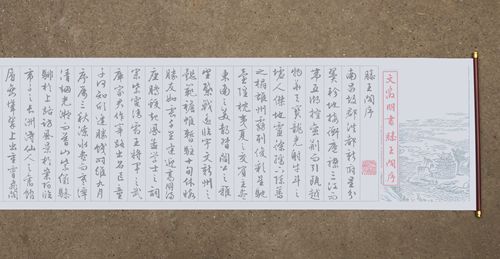 文徵明書滕王閣序
滕王閣序
南昌故郡洪都新府星分
翼軫地接衡廬襟三江而
帶五湖控蠻荊而引甌越
物華天寶龍光射牛斗之
墟人傑地靈徐孺下陳蕃
之榻雄州霧列俊彩星馳
臺隍枕夷夏之交賓主盡
東南之美都督閻公之雅
望棨戟遙臨宇文新州之
懿範襜帷暫駐十旬休暇
勝友如雲千里逢迎高朋滿
座騰蛟起鳳孟學士之詞
宗紫電清霜王將軍之武
庫家君作宰路出名區童
子何知躬逢勝餞時維九月
序屬三秋潦水盡而寒潭
清煙光凝而暮山紫儼驂
騑於上路訪風景於崇阿臨
帝子之長洲得仙人之舊館
層巒聳翠上出重霄飛閣